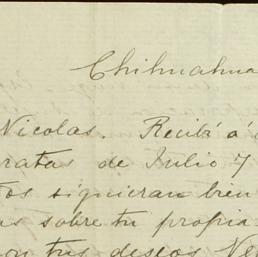 Chihuahua
Nicolas. Recibí
ratas de Julio 7
siguieran bien
sobre tu propia
tus deseos